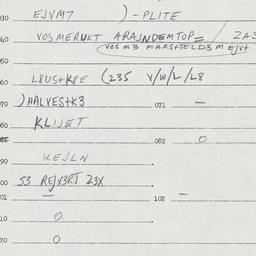 30 EJVM7 )-PLITE
40 VOSMERUKT ARAJNDEMTOP= / ZAS
(VOS M3 FARSHTELD3M EJVt
60 L8US+KPE (235 V/W/L/L8
70 )HALVES+K3 071 —
80 KLIJET
082 0
90 KEJLN
00 S3 REJX3RT Z3X
01 — 102 —
10 0
20 0